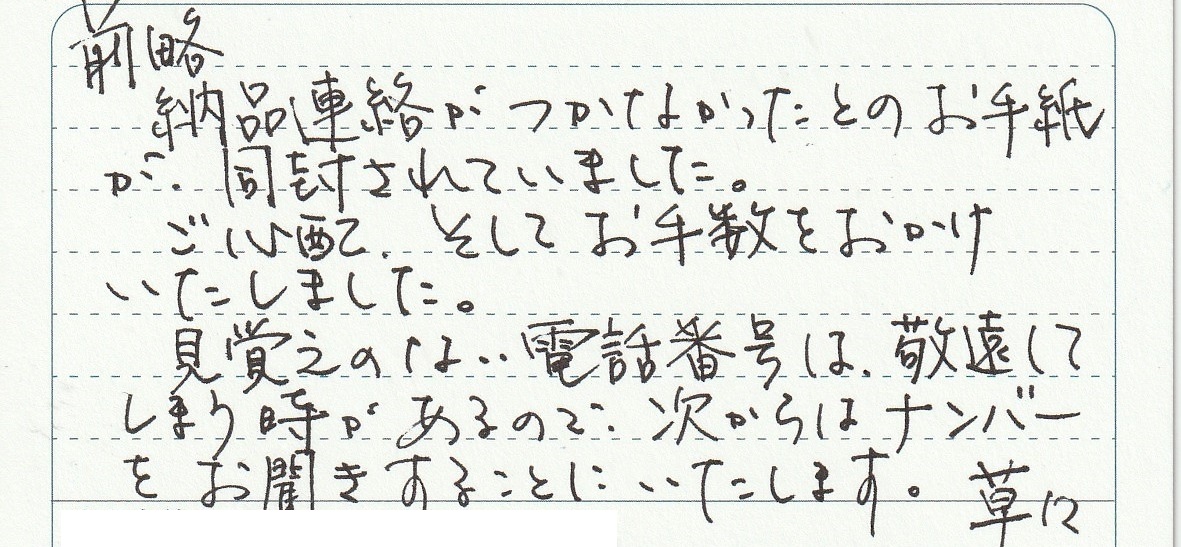 前略
納品連絡がつかなかったとのお手紙
が、同封されていました。
ご心配、そしてお手数をおかけ
いたしました。
見覚えのない電話番号は、敬遠して
しまう時があるので、次からはナンバー
をお聞きすることにいたします。 草々